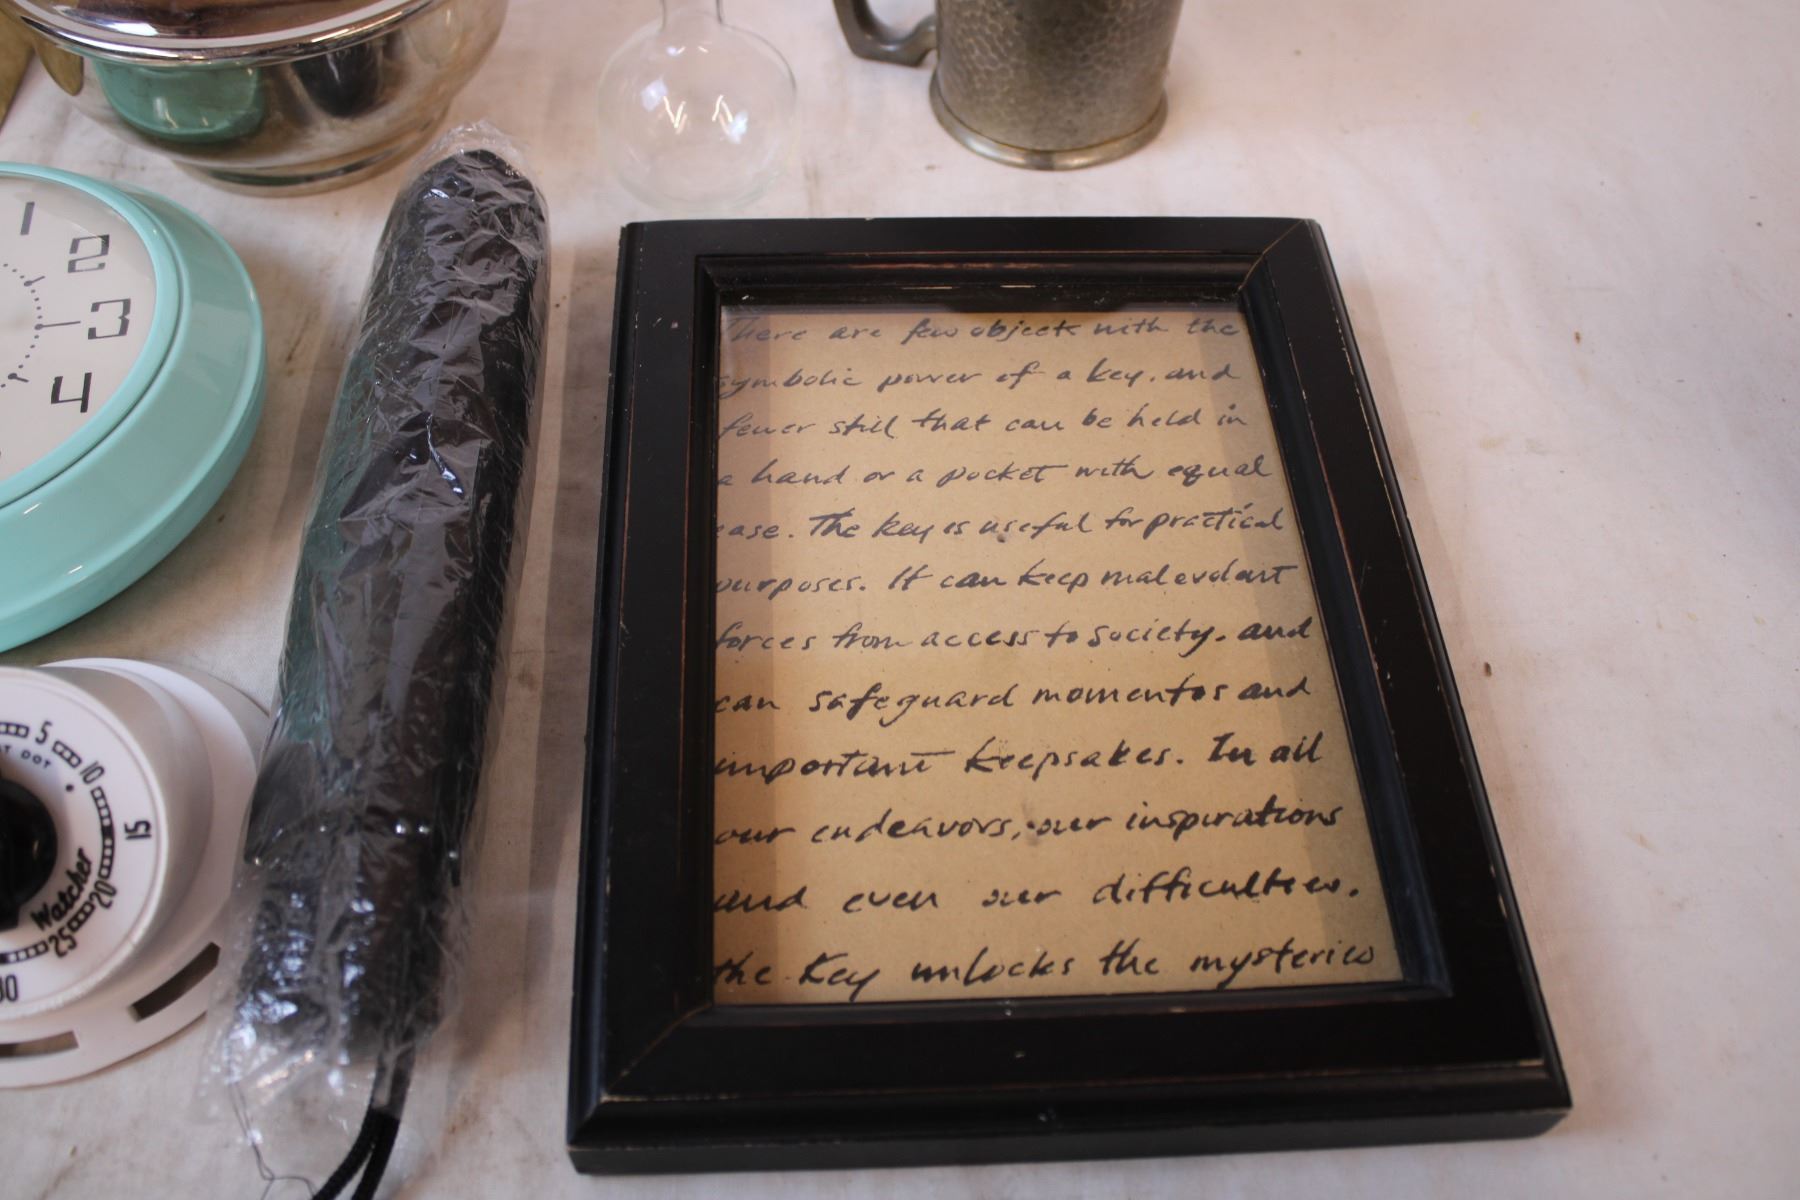 1
2
3
4
5
10
15
20
25
DOT
Watcher
There are few objects with the
symbolic power of a key. and
fewer still that can be held in
a hand or a pocket with equal
ease. The key is useful for practical
purposes. It can keep malevolant
forces from access to society. and
can safeguard momentos and
important keepsakes. In all
our endeavors, our inspirations
and even our difficulties.
the key unlocks the mysteries